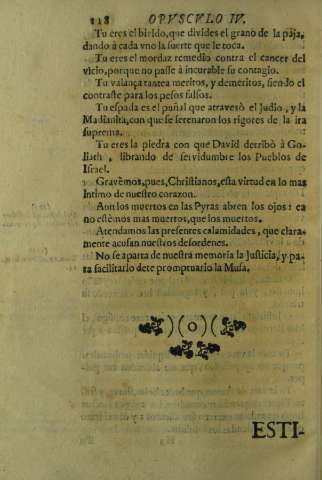 118 OPVSCVLO IV.
Tu eres el bieldo, que divides el grano de la paja,
dando à cada vno la suerte que le toca.
Tu eres el mordaz remedio contra el cancer del
vicio, porque no passe à incurable su contagio.
Tu valança tantea meritos, y demeritos, siendo el
contraste para los pesos falsos.
Tu espada es el puñal que atravesò el Judio, y la
Madianita, con que se serenaron los rigores de la ira
suprema.
Tu eres la piedra con que David derribò à Go-
liath, librando de servidumbre los Pueblos de
Israel.
Gravèmos, pues, Christianos, esta virtud en lo mas
intimo de nuestro corazon.
Aon los muertos en las Pyras abren los ojos: ea
no estèmos mas muertos, que los muertos.
Atendamos las presentes calamidades, que clara-
mente acusan nuestros desordenes.
No se aparta de nuestra memoria la Justicia, y pa-
ra facilitarlo dete promptuario la Musa.
ESTI-